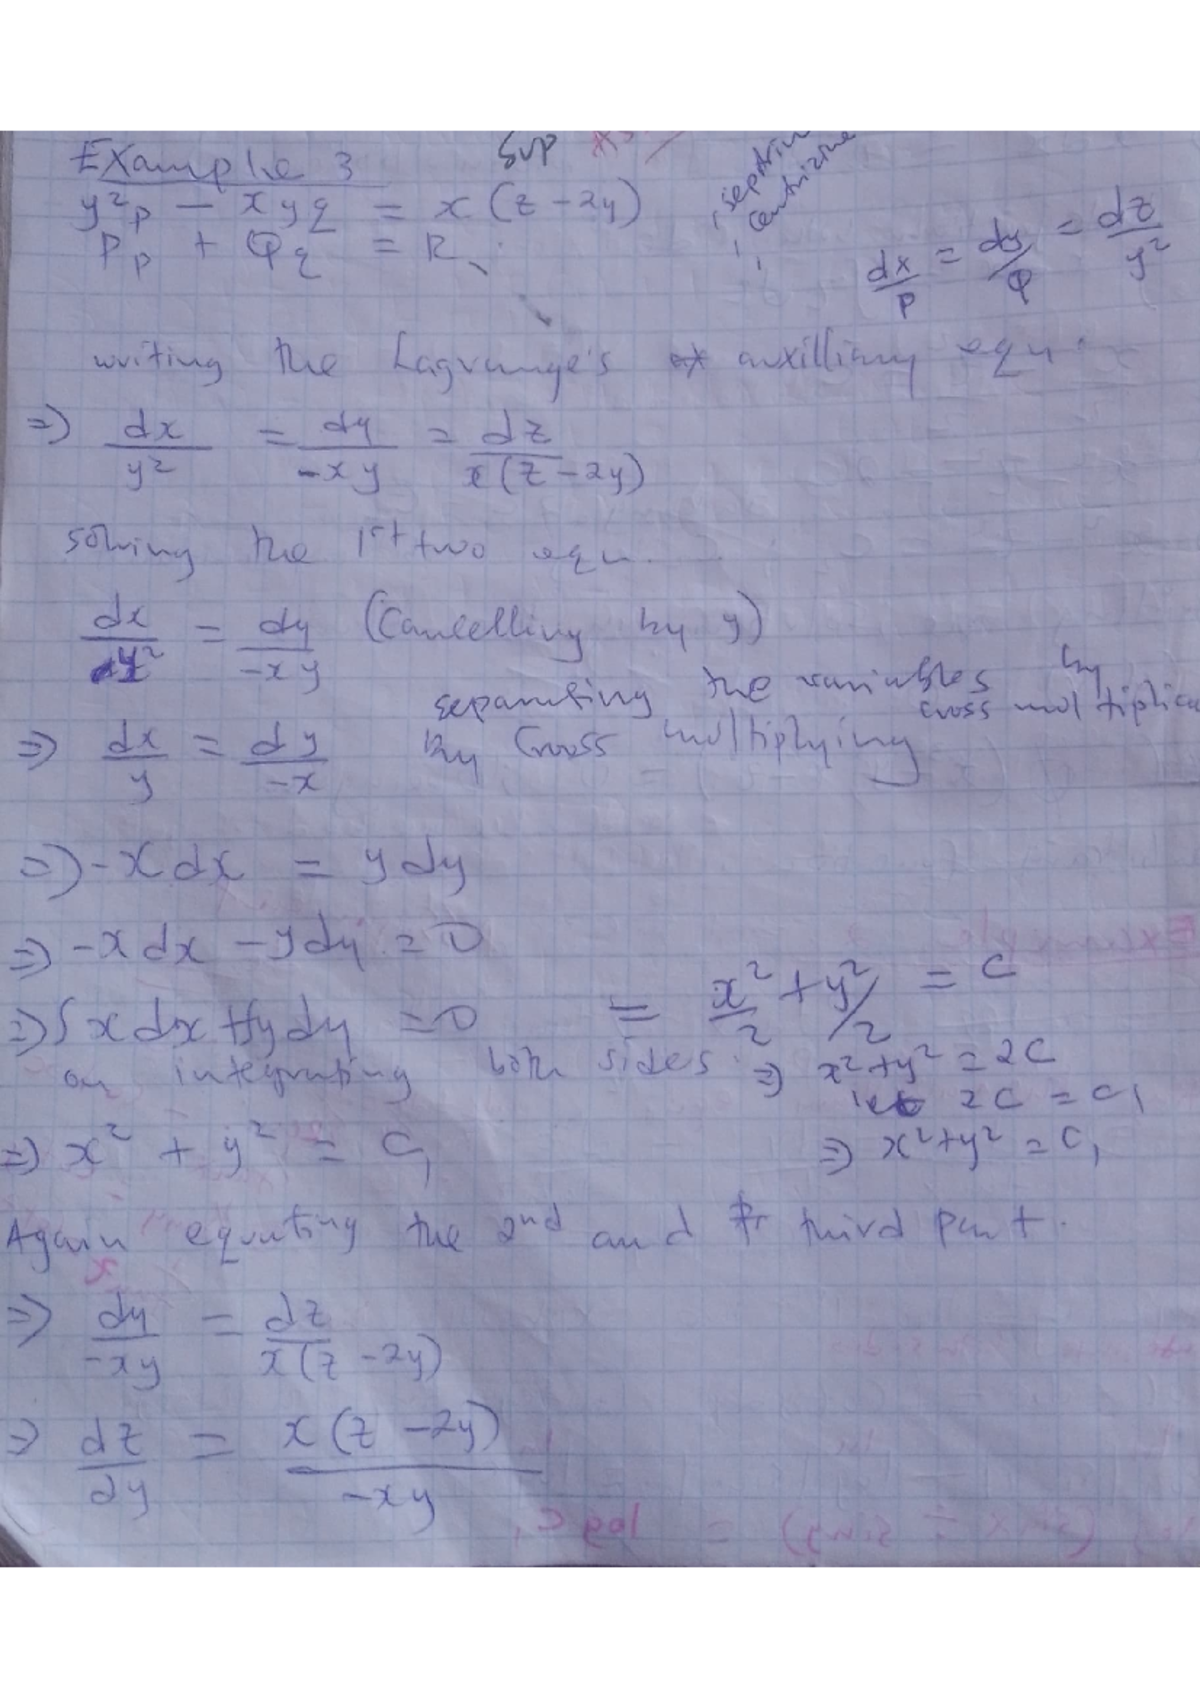 Example 3
Sup
y²p − xyq = x(z − 2y)
Pp + Qq = R
dx/P = dy/Q = dz/y²
writing the Lagrange's auxilliary equn.
⇒ dx/y² = dy/-xy = dz/x(z − 2y)
solving the 1st two equ.
dx/y² = dy/-xy (Cancelling by y)
separating the variables by cross multiplica
⇒ dx/y = dy/-x By Cross multiplying
⇒ -x dx = y dy
⇒ -x dx − y dy = 0
⇒ ∫x dx + ∫y dy = 0
on integrating both sides
= x²/2 + y²/2 = C
⇒ x² + y² = 2C
let 2C = C₁
⇒ x² + y² = C₁
⇒ x² + y² = C₁
Again equating the 2nd and third part.
⇒ dy/-xy = dz/x(z − 2y)
⇒ dz/dy = x(z − 2y)/-xy